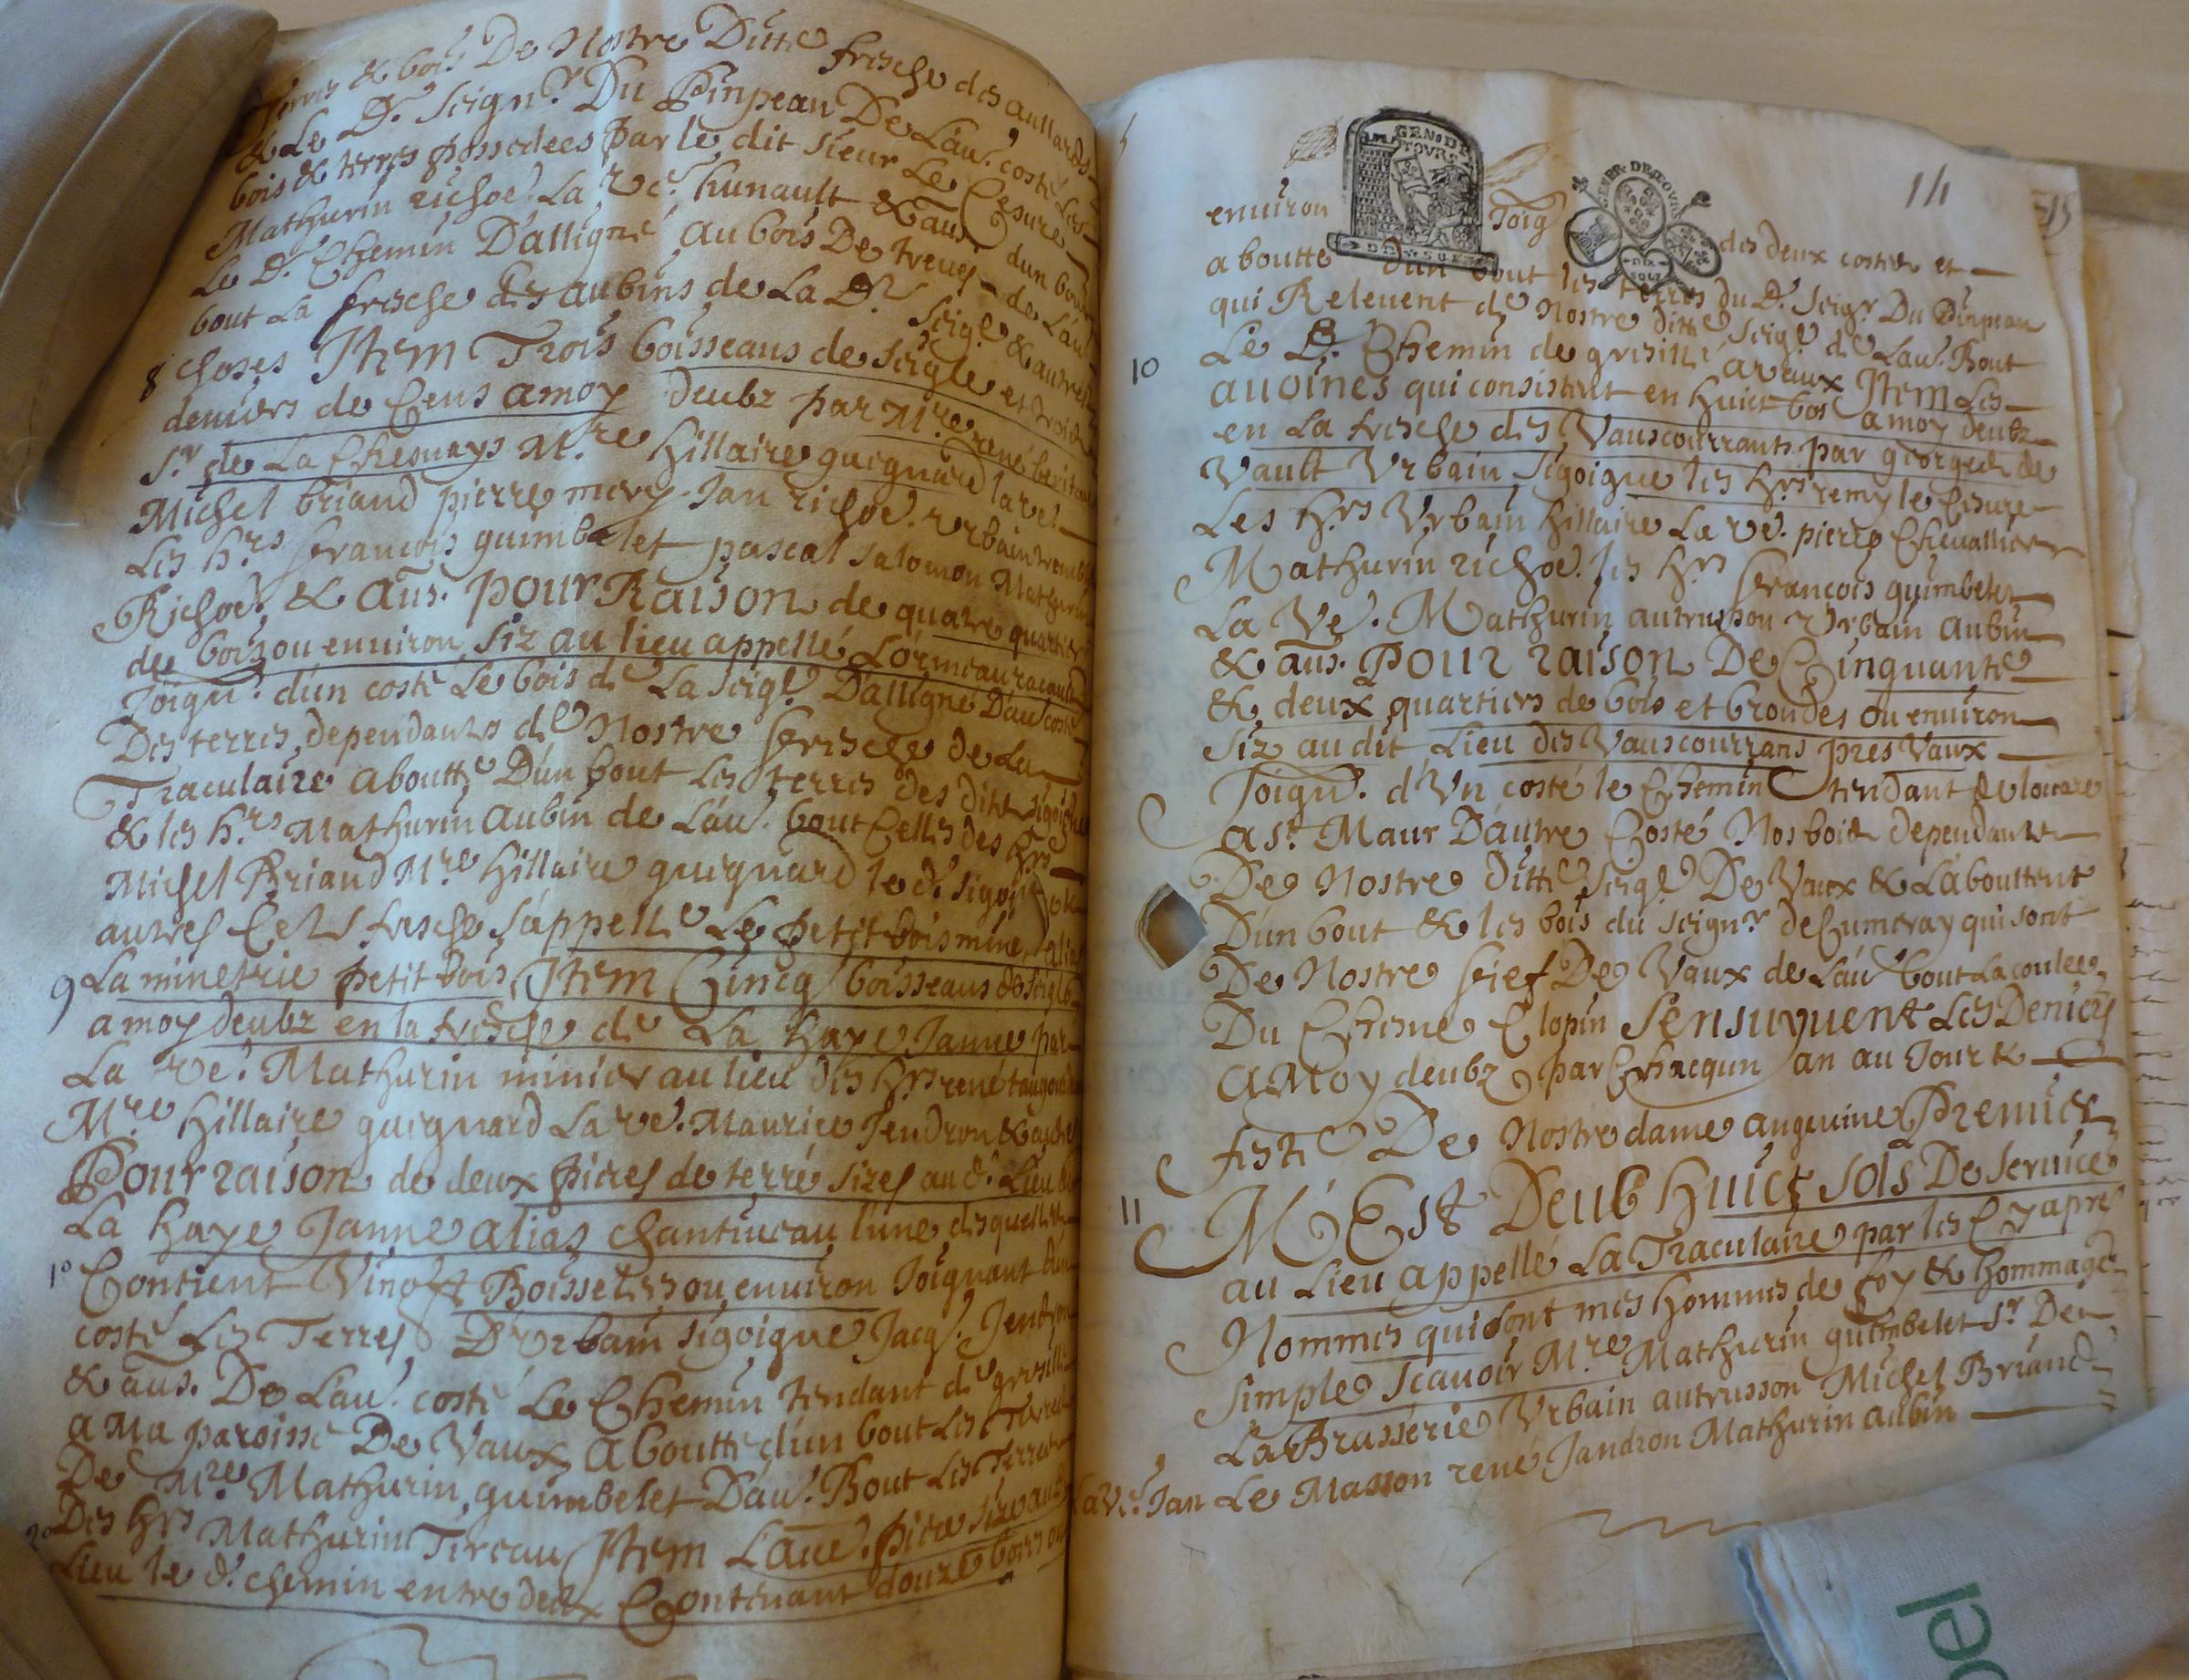 Terres & bois De Nostre Ditte frische des aullards
& Le D.r Seign.r Du Pinpean De L'au. costé Les
bois & terres possedees par le dit sieur Le Cesure
Mathurin richoe. La ve. hunault & aus. dun bout
Le D.r Chemin D'alligné au bois De treues de L'au.
bout La frische des aubins de La D.e Seig.e & autres
8 choses Item Trois boisseaus de seigle et trois
deniers de Cens amoy deubz par M.re rené
S.r de La Chesnays M.re Hillaire guignard la ve.
Michel briand pierre mery Jan richoe. Urbain
Les h.rs francois guimbelet pascal salomon Mathurin
Richoe, & aus. pour Raison de quatre quartiers
de bois ou enuiron siz au lieu appellé L'ormeau
Joign.t d'un costé Le bois de La Seig.e D'alligné D'au. costé
Des terres dependantes de Nostre frische de La
Traculaire aboutte D'un bout Les terres des dits sigoigne
& les h.rs Mathurin Aubin de L'au. bout Celles des h.rs
Michel Briand M.re Hillaire guignard le d.
autres Cette frische s'appelle Le petit bois mine, alias
9 La mineterie petit bois, Item Cincq boisseaus de seigle
amoy deubz en la frische de La haye Janne par
La ve. Mathurin minier au lieu des h.rs rené
M.re Hillaire guignard La ve. Maurice Jendron &
Pour raison de deux pieces de terre sizes au d. Lieu de
La haye Janne alias chantiueau l'une desquelles
1° Contient Vingt Boisselees ou enuiron Joignant d'un
costé Les Terres D'Urbain sigoigne Jacq. Jendron
& aus. De L'au. costé Le Chemin tendant de gresille
a Ma paroisse De Vaux Aboutte d'un bout Les Terres
De M.re Mathurin guimbelet D'au. Bout Les Terres
2° Des h.rs Mathurin Tireau Item L'aue. piece size au d.
Lieu le d. chemin entre deux Contenant douze bois.es ou
14
15
GEN.DE TOVRS
GENER. DE TOVRS
DIX SOLZ
enuiron Joig des deux costés et
aboutte d'un bout les terres du D.r Seig.r Du Pinpean
qui Releuent de Nostre ditte Seig.e de L'au. Bout
10 Le D. Chemin de grisille a Vaux Item Les
auoines qui consistent en Huict bois. amoy deubz
en La frische des Vauscourrants par georges de
Vault Urbain sigoigne les h.rs remy le Cesure
Les H.rs Urbain Hillaire La ve. pierre Cheuallier
Mathurin richoe. les h.rs francois guimbelet
La Ve. Mathurin autrusson Urbain aubin
& aus. Pour raison De Cinquante
& deux quartiers de bois et brondes ou enuiron
siz au dit Lieu des Vauscourrans pres Vaux
Joign.t d'Vn costé le Chemin tendant de
a S.t Maur D'autre Costé Nos bois dependants
De Nostre ditte seig.e De Vaux & L'abouttent
D'un bout & les bois du seign.r de Cumeray qui sont
De Nostre fief De Vaux de L'au. bout La coulee
Du Chesne Clopin Sensuyuent Les Deniers
AMoy deubz par Chacqun an au Jour &
feste De Nostre dame angeuine Premier
11 M'Est Deub Huict sols De seruice
au Lieu appellé La Traculaire par les Cy apres
Nommes qui sont mes Hommes de foy & hommage
simple Scauoir M.re Mathurin guimbelet S.r De
La Brasserie Urbain autrusson Michel Briand
La ve. Jan Le Masson rené Jandron Mathurin aubin